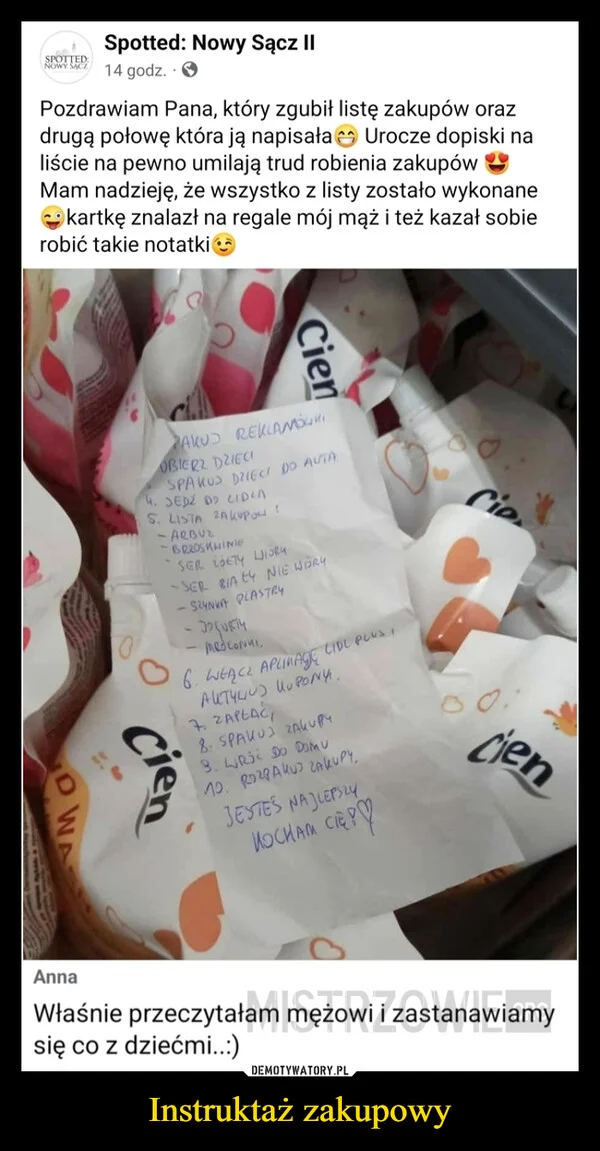 Spotted: Nowy Sącz II
SPOTTED:
NOWY SĄCZ
14 godz. ·
Pozdrawiam Pana, który zgubił listę zakupów oraz
drugą połowę która ją napisała😁 Urocze dopiski na
liście na pewno umilają trud robienia zakupów 😍
Mam nadzieję, że wszystko z listy zostało wykonane
😜kartkę znalazł na regale mój mąż i też kazał sobie
robić takie notatki😉
Cien
PAKUJ REKLAMÓWKI
UBIERZ DZIECI
SPAKUJ DZIECI DO AUTA
4. JEDŹ DO LIDLA
5. LISTA ZAKUPÓW:
- ARBUZ
- BRZOSKWINIE
- SER ŻÓŁTY WIÓRY
- SER BIAŁY NIE WIÓRY
- SZYNKA PLASTRY
- JOGURTY
6. WŁĄCZ APLIKACJĘ LIDL PLUS I
AKTYWUJ KUPONY.
7. ZAPŁAĆ
8. SPAKUJ ZAKUPY
9. WRÓĆ DO DOMU
10. ROZPAKUJ ZAKUPY.
JESTEŚ NAJLEPSZY
KOCHAM CIĘ!♡
Cien
Cien
Cien
Anna
Właśnie przeczytałam mężowi i zastanawiamy
się co z dziećmi..:)
MISTRZOWIE.ORG
DEMOTYWATORY.PL
Instruktaż zakupowy